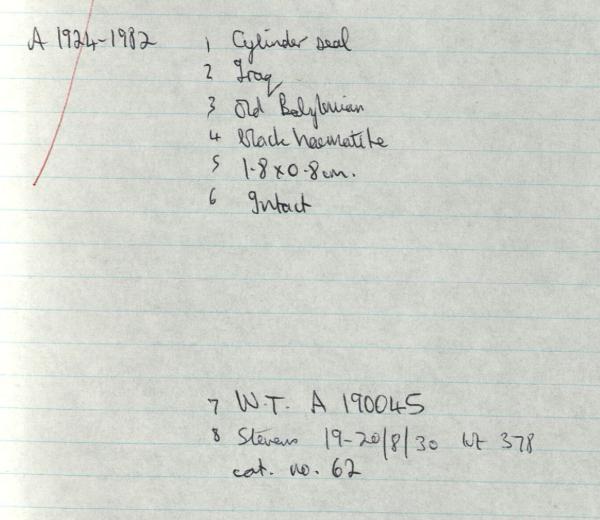 A 1924-1982 1 Cylinder seal
2 Iraq
3 Old Babylonian
4 black haematite
5 1.8 x 0.8 cm.
6 Intact
7 W.T. A 190045
8 Stevens 19-20/8/30 lot 378
cat. no. 62